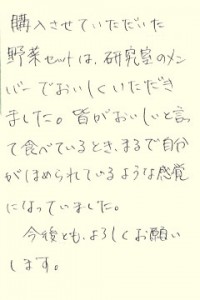 購入させていただいた
野菜セットは、研究室のメン
バーでおいしくいただき
ました。皆がおいしいと言っ
て食べているとき、まるで自分
がほめられているような感覚
になっていました。
今後とも、よろしくお願い
します。